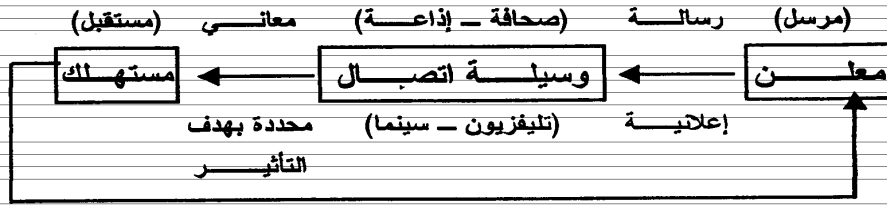 (مرسل) رسالة (صحافة – إذاعة) معاني (مستقبل)
معلن وسيلة اتصال مستهلك
إعلانية (تليفزيون – سينما) محددة بهدف
التأثير